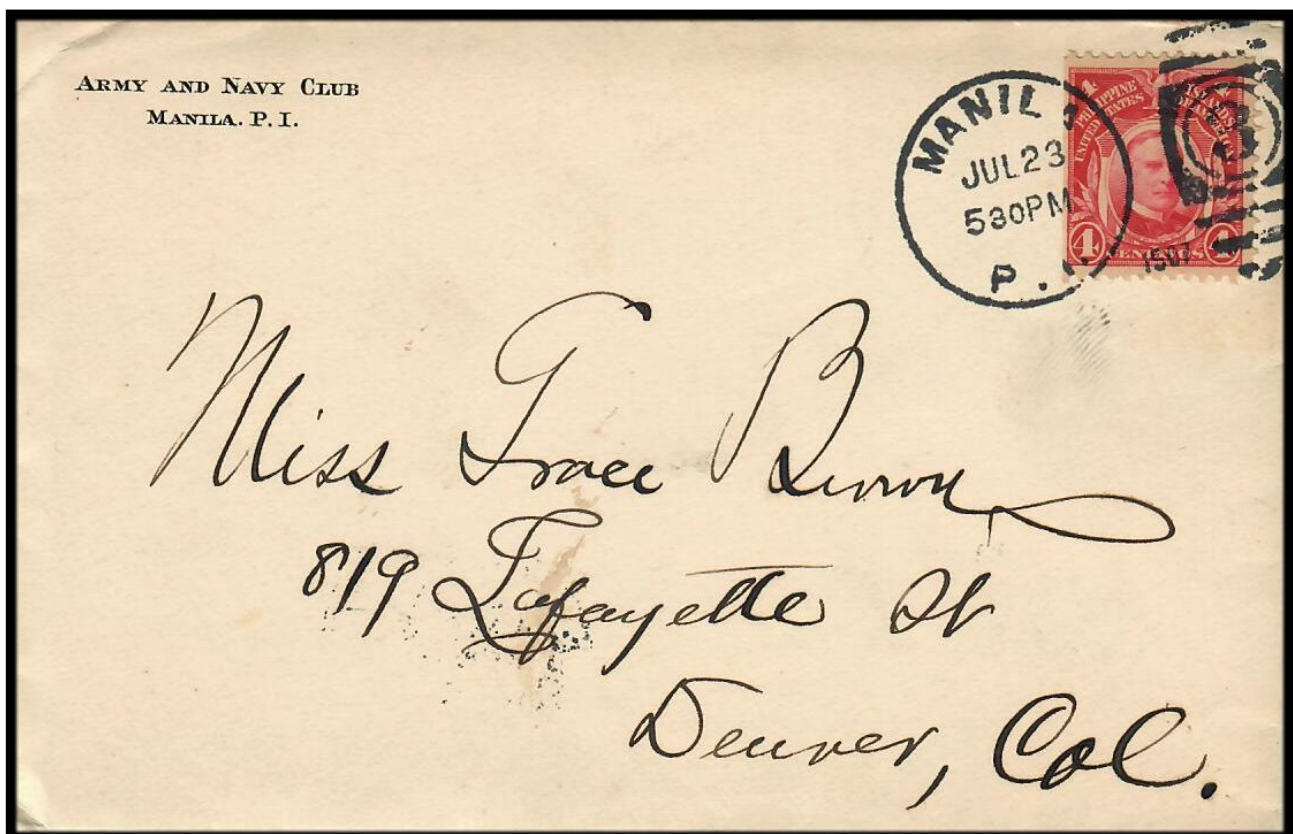 ARMY AND NAVY CLUB
MANILA. P. I.
MANIL
JUL 23
530PM
P.
1907
4
PHILIPPINE ISLANDS
UNITED STATES OF AMERICA
4 CENTAVOS 4
3
Miss Grace Brown
819 Lafayette St
Denver, Col.